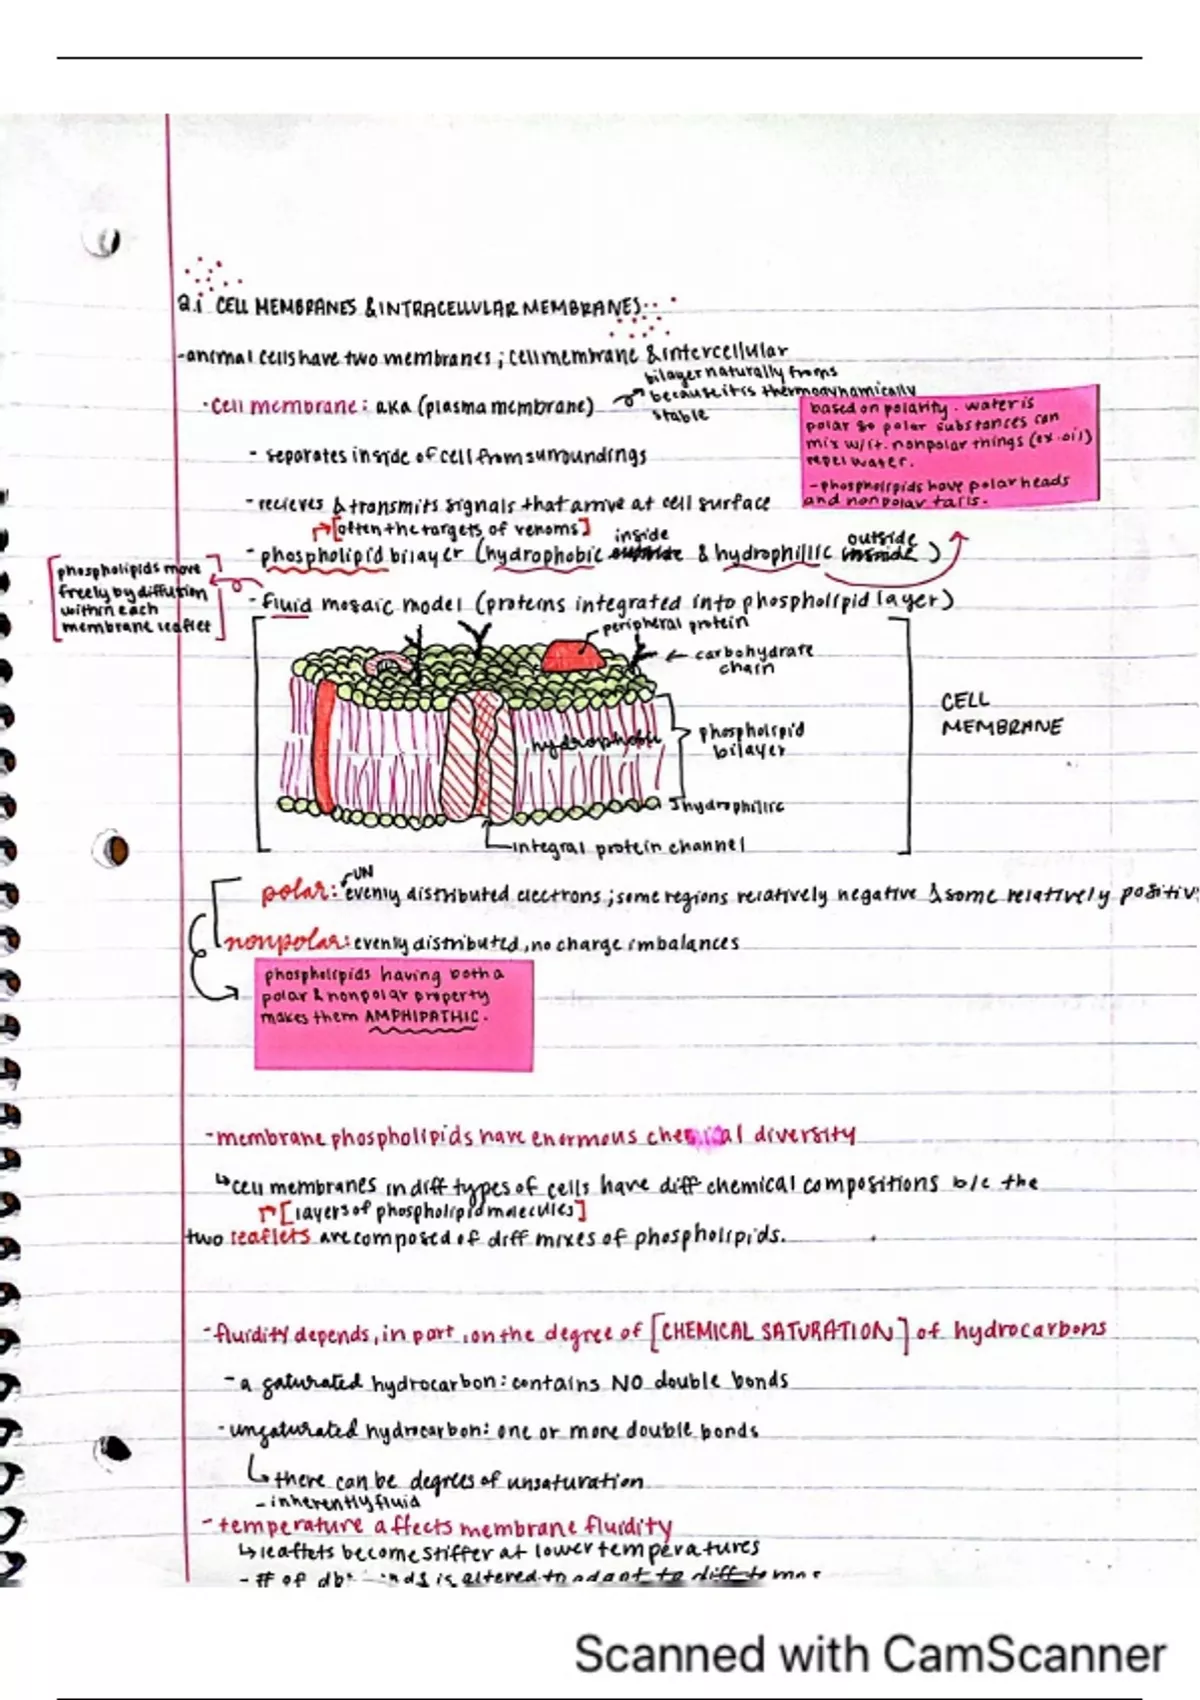 2.1 CELL MEMBRANES & INTRACELLULAR MEMBRANES
-animal cells have two membranes ; cell membrane & intercellular
bilayer naturally froms
because it is thermodynamically
stable
·Cell membrane: aka (plasma membrane)
based on polarity. water is
polar so polar substances can
mix w/it. nonpolar things (ex. oil)
repel water.
-phospholipids have polar heads
and nonpolar tails.
- separates inside of cell from surroundings
- recieves & transmits signals that arrive at cell surface
[often the targets of venoms]
inside
outside
- phospholipid bilayer (hydrophobic outside & hydrophillic inside )
phospholipids move
freely by diffusion
within each
membrane leaflet
- fluid mosaic model (proteins integrated into phospholipid layer)
peripheral protein
carbohydrate
chain
CELL
MEMBRANE
phospholipid
bilayer
hydrophobic
hydrophillic
integral protein channel
UN
polar: evenly distributed electrons ; some regions relatively negative & some relatively positiv
nonpolar: evenly distributed, no charge imbalances
phospholipids having both a
polar & nonpolar property
makes them AMPHIPATHIC.
-membrane phospholipids have enormous chemical diversity
↳cell membranes in diff types of cells have diff chemical compositions b/c the
[layers of phospholipid molecules]
two leaflets are composed of diff mixes of phospholipids.
-fluidity depends, in part, on the degree of [CHEMICAL SATURATION] of hydrocarbons
- a saturated hydrocarbon: contains NO double bonds
- unsaturated hydrocarbon: one or more double bonds
↳ there can be degrees of unsaturation
- inherently fluid
- temperature affects membrane fluidity
↳ leaflets become stiffer at lower temperatures
- # of is altered to adapt to diff temps
Scanned with CamScanner